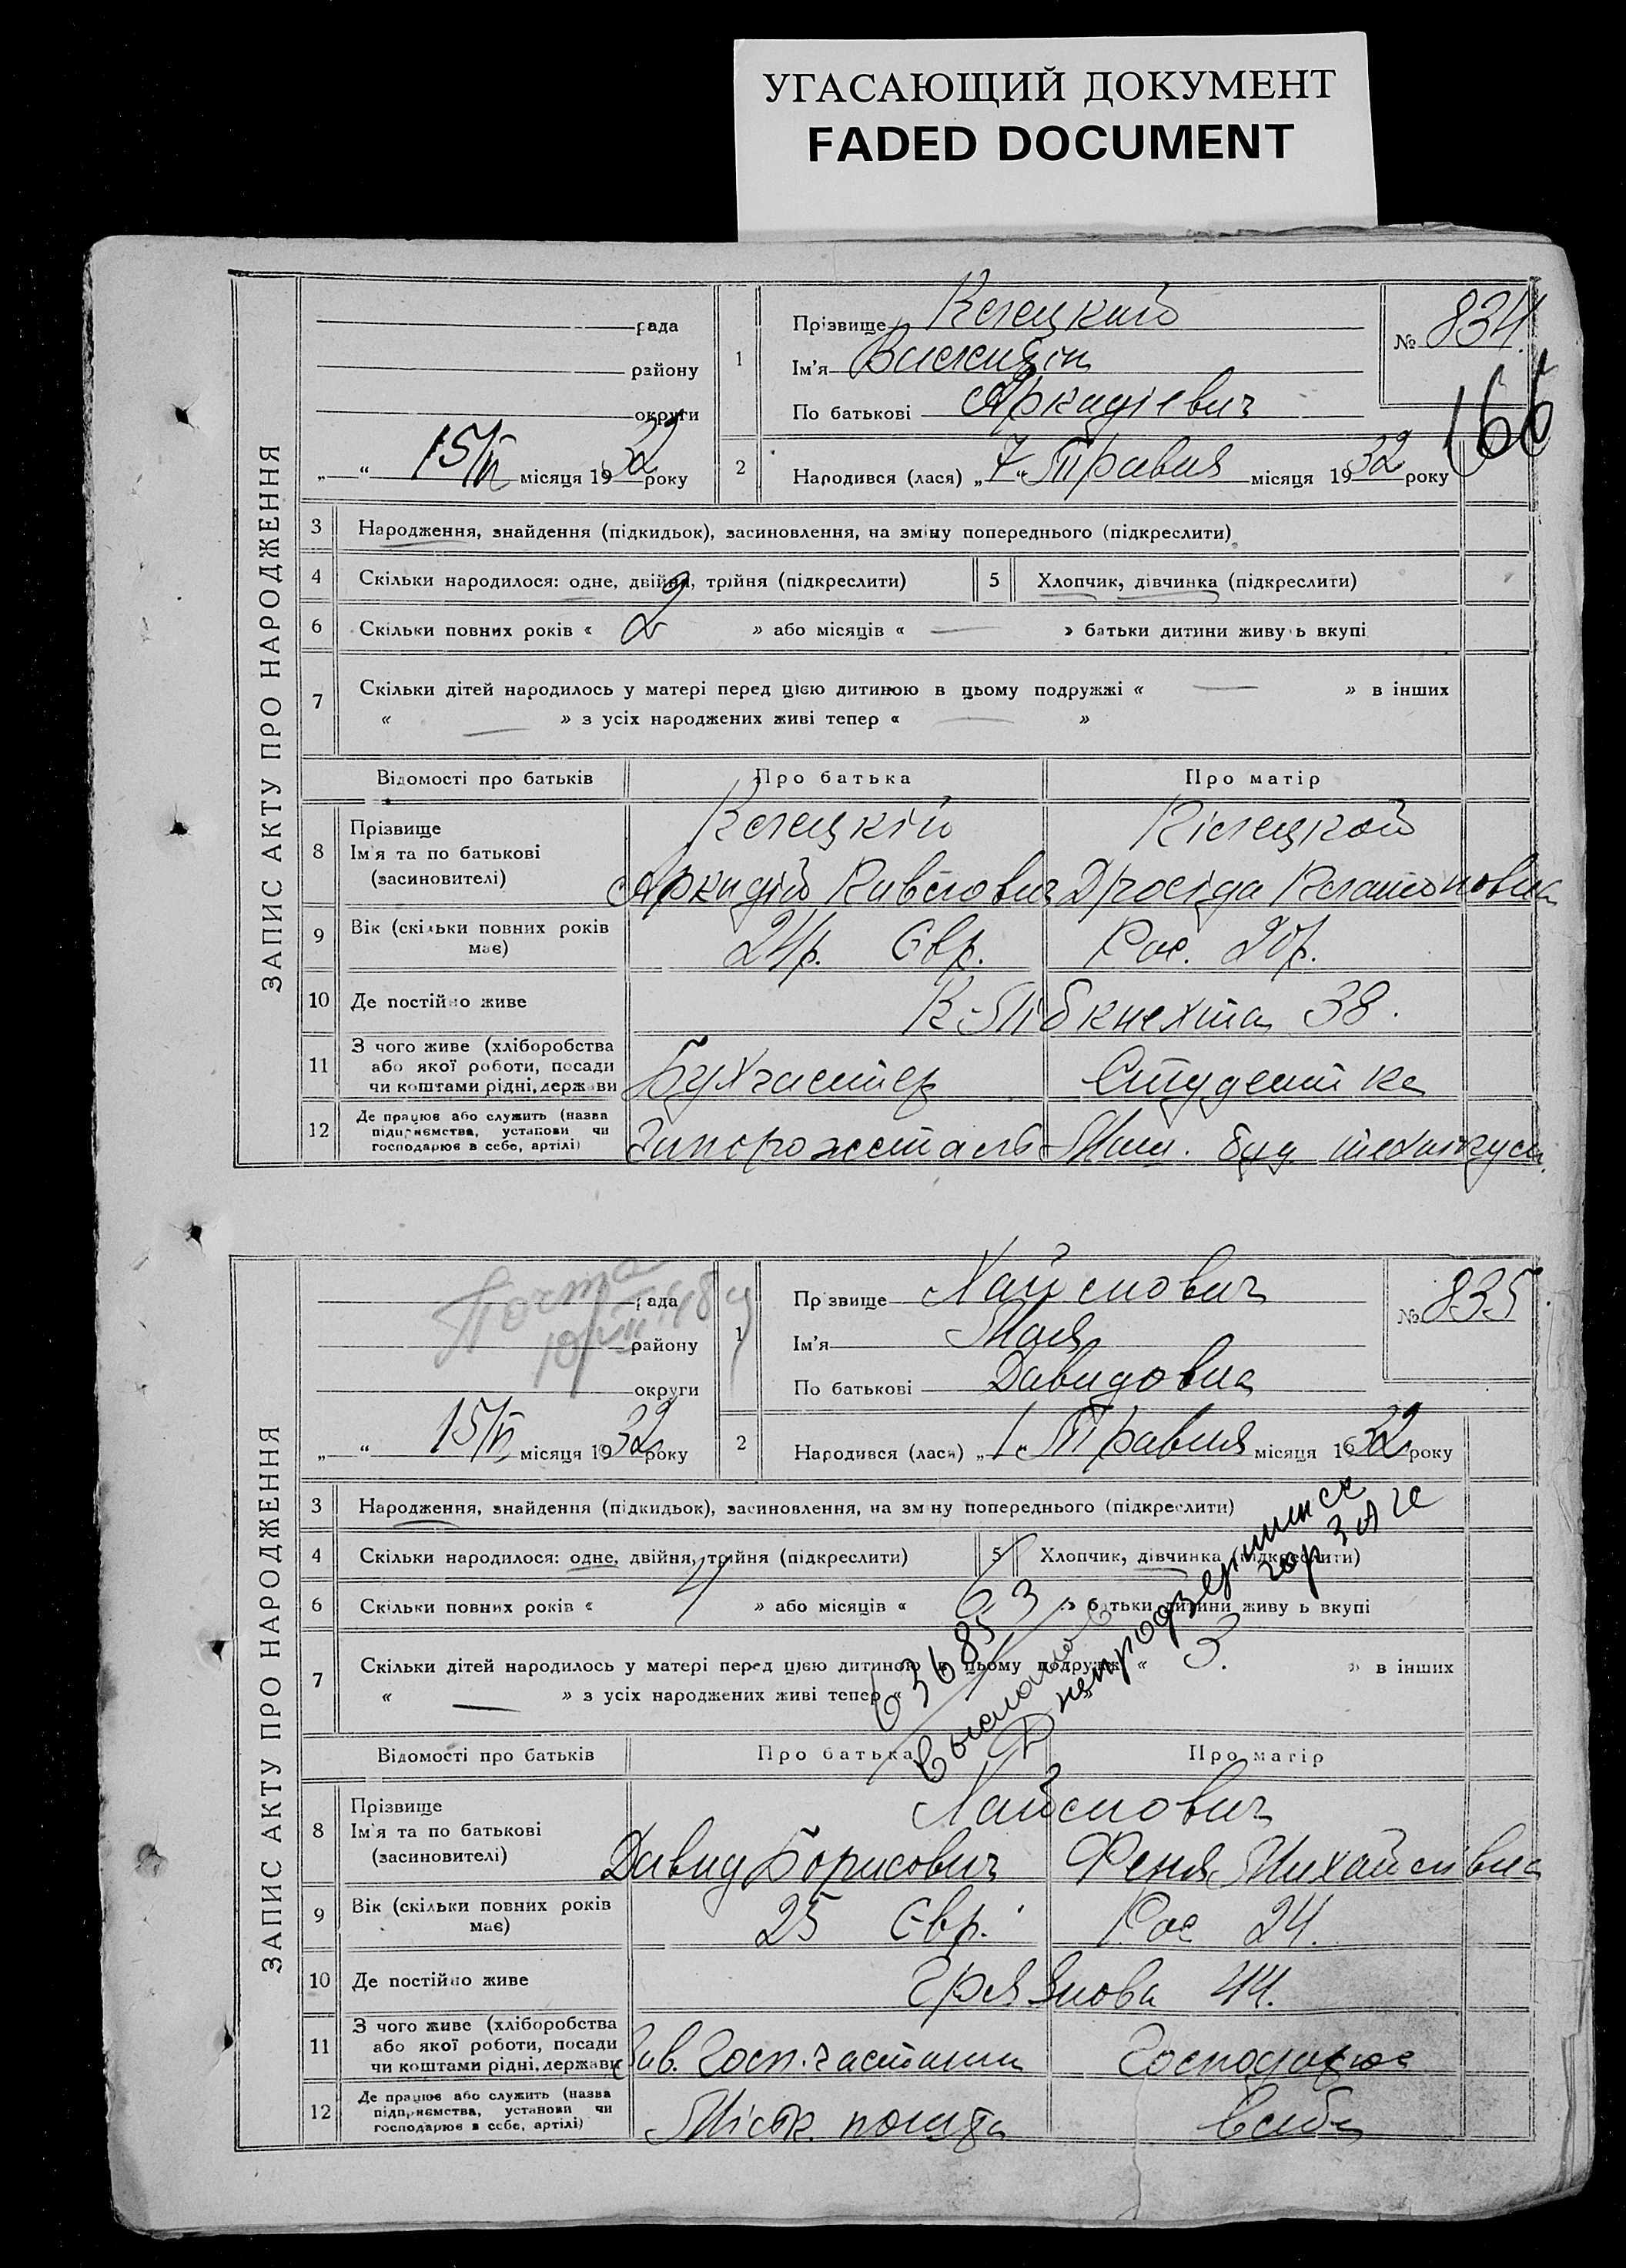 УГАСАЮЩИЙ ДОКУМЕНТ
FADED DOCUMENT
ЗАПИС АКТУ ПРО НАРОДЖЕННЯ
рада
району
округи
„ “ 15/VI місяця 1932 року
1
Прізвище
Ім'я
По батькові Аркадієвич
№ 834.
166
2
Народився (лася) „7“ Травня місяця 1932 року
3 Народження, знайдення (підкидьок), засиновлення, на зміну попереднього (підкреслити)
4 Скільки народилося: одне, двійня, трійня (підкреслити)
5 Хлопчик, дівчинка (підкреслити)
6 Скільки повних років « 2 » або місяців « — » батьки дитини живуть вкупі
7 Скільки дітей народилось у матері перед цією дитиною в цьому подружжі « — » в інших
« — » з усіх народжених живі тепер « — »
Відомості про батьків Про батька Про матір
8 Прізвище
Ім'я та по батькові
(засновителі)
Аркадій
9 Вік (скільки повних років має) 24р. Євр. Рос. 20р.
10 Де постійно живе К-Лібкнехта 38.
11 З чого живе (хліборобства
або якої роботи, посади
чи коштами рідні, держави
Бухгалтер Студентка
12 Де працює або служить (назва
підприємства, установи чи
господарює в себе, артілі)
Запорожсталь Маш. буд. технікум
ЗАПИС АКТУ ПРО НАРОДЖЕННЯ
Почта
рада
району
округи
„ “ 15/VI місяця 1932 року
1
Прізвище Хаймович
Ім'я Мая
По батькові Давидовна
№ 835
2
Народився (лася) „1“ Травня місяця 1932 року
3 Народження, знайдення (підкидьок), засиновлення, на зміну попереднього (підкреслити)
4 Скільки народилося: одне, двійня, трійня (підкреслити)
5 Хлопчик, дівчинка (підкреслити)
6 Скільки повних років « 4 » або місяців « » батьки дитини живуть вкупі
7 Скільки дітей народилось у матері перед цією дитиною в цьому подружжі « » в інших
« — » з усіх народжених живі тепер «
Днепродзержинск
гор ЗАГС
Відомості про батьків Про батька Про матір
8 Прізвище
Ім'я та по батькові
(засновителі)
Хаймович
Давид Борисович Феня Михайлівна
9 Вік (скільки повних років має) 25 Євр. Рос 24.
10 Де постійно живе Грязнова 44.
11 З чого живе (хліборобства
або якої роботи, посади
чи коштами рідні, держави
Зав. Госп. частини Господарює
12 Де працює або служить (назва
підприємства, установи чи
господарює в себе, артілі)
Міськ. пошта в себе